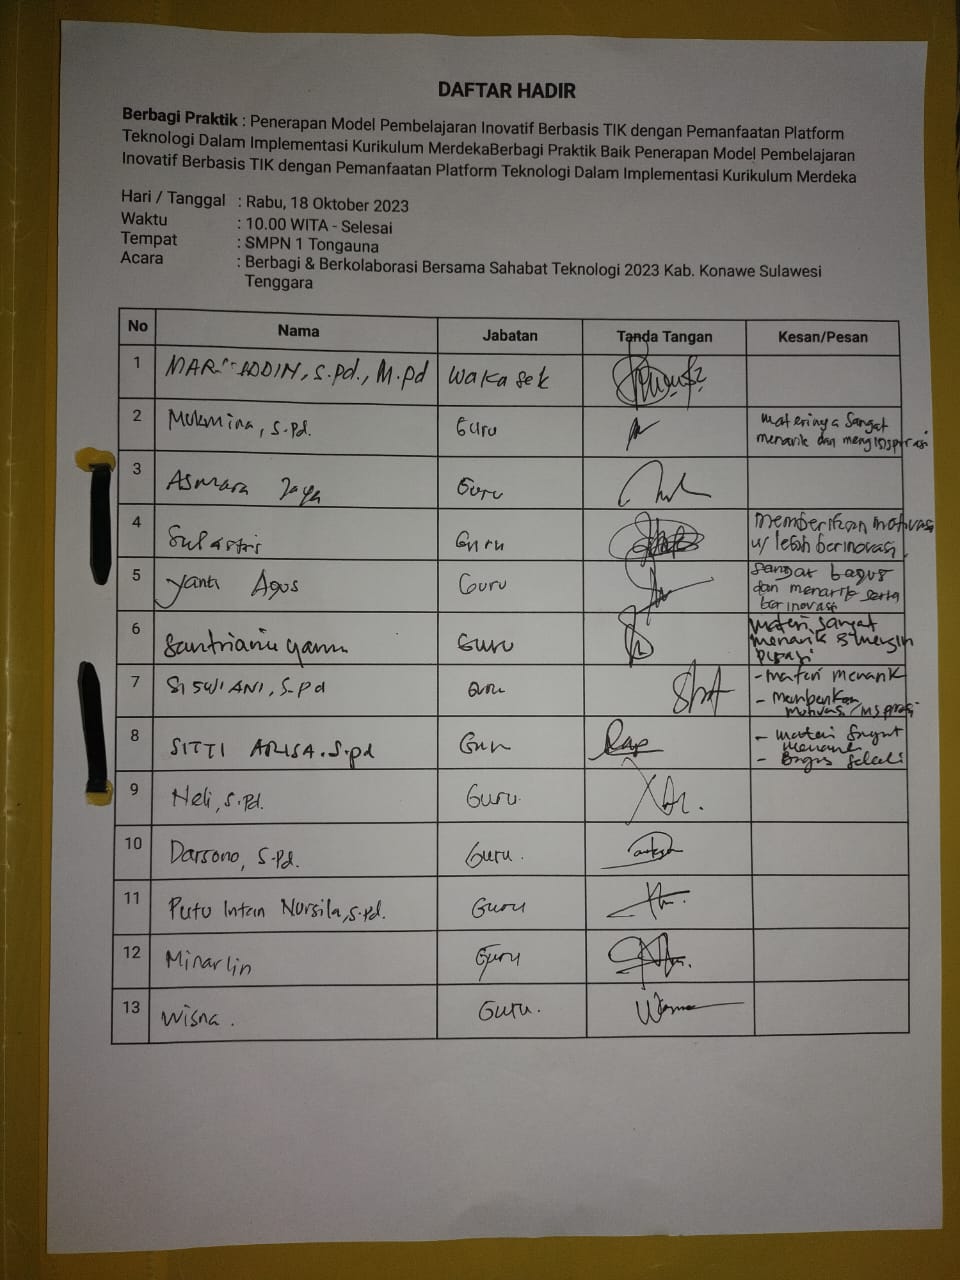 DAFTAR HADIR
Berbagi Praktik : Penerapan Model Pembelajaran Inovatif Berbasis TIK dengan Pemanfaatan Platform
Teknologi Dalam Implementasi Kurikulum MerdekaBerbagi Praktik Baik Penerapan Model Pembelajaran
Inovatif Berbasis TIK dengan Pemanfaatan Platform Teknologi Dalam Implementasi Kurikulum Merdeka
Hari / Tanggal : Rabu, 18 Oktober 2023
Waktu : 10.00 WITA - Selesai
Tempat : SMPN 1 Tongauna
Acara : Berbagi & Berkolaborasi Bersama Sahabat Teknologi 2023 Kab. Konawe Sulawesi
Tenggara
No Nama Jabatan Tanda Tangan Kesan/Pesan
1 S.Pd., M.Pd Wakasek
2 Mukmina, S.Pd. Guru materinya sangat
menarik dan
3 Asmara Jaya Guru
4 Sulastri Guru memberikan motivasi
u/ lebih berinovasi
5 Yanti Agus Guru Sangat bagus
dan menarik serta
berinovasi
6 Guru Materi sangat
menarik &
7 SISWIANI, S.Pd Guru - materi menarik
- Memberikan
motivasi/
8 SITTI ARISA. S.pd Guru - materi sangat
menarik
- Bagus sekali
9 Neli, S.Pd. Guru.
10 Darsono, S.Pd. Guru.
11 Putu Intan Nursila, S.Pd. Guru
12 Minarlin Guru
13 Wisna. Guru.